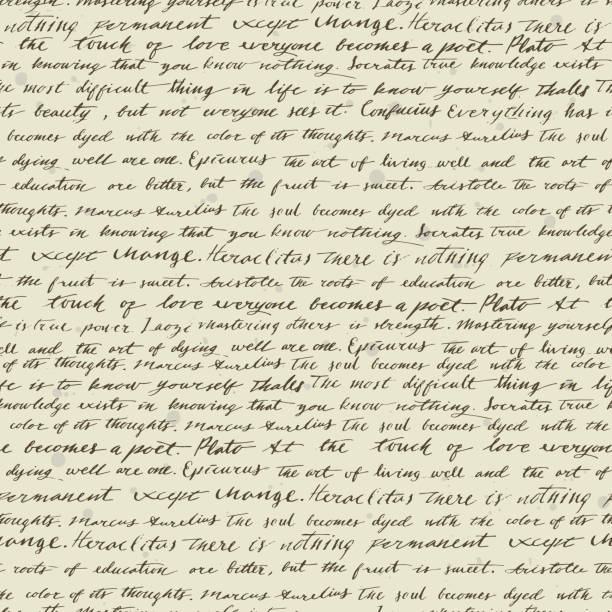 strength. Mastering yourself is true power. Laozi Mastering others is
nothing permanent except change. Heraclitus There is
the touch of love everyone becomes a poet. Plato At
in knowing that you know nothing. Socrates True knowledge exists
most difficult thing in life is to know yourself. Thales The
its beauty, but not everyone sees it. Confucius Everything has
becomes dyed with the color of its thoughts. Marcus Aurelius The soul
dying well are one. Epicurus The art of living well and the art of
education are bitter, but the fruit is sweet. Aristotle The roots of
thoughts. Marcus Aurelius The soul becomes dyed with the color of its
exists in knowing that you know nothing. Socrates True knowledge
except change. Heraclitus There is nothing permanen
the fruit is sweet. Aristotle The roots of education are bitter, but
the touch of love everyone becomes a poet. Plato At
is true power. Laozi Mastering others is strength. Mastering yourself
and the art of dying well are one. Epicurus The art of living
of its thoughts. Marcus Aurelius The soul becomes dyed with the color
is to know yourself Thales The most difficult thing in
knowledge exists in knowing that you know nothing. Socrates True
color of its thoughts. Marcus Aurelius The soul becomes dyed with the
becomes a poet. Plato At the touch of love everyon
dying well are one. Epicurus The art of living well and the art of
permanent except change. Heraclitus There is nothing
thoughts. Marcus Aurelius The soul becomes dyed with the color of its
ange. Heraclitus There is nothing permanent except
roots of education are bitter, but the fruit is sweet. Aristotle The
the color of its thoughts. Marcus Aurelius The soul becomes dyed with